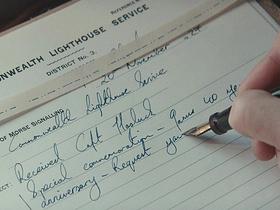 REFERENCE N
MONWEALTH LIGHTHOUSE SERVICE
DISTRICT No. 3.
20 November
OF MORSE SIGNALLING
Commonwealth Lighthouse Service
ECT:
Received Capt
Special commemoration - 40 Ye
anniversary - Request you